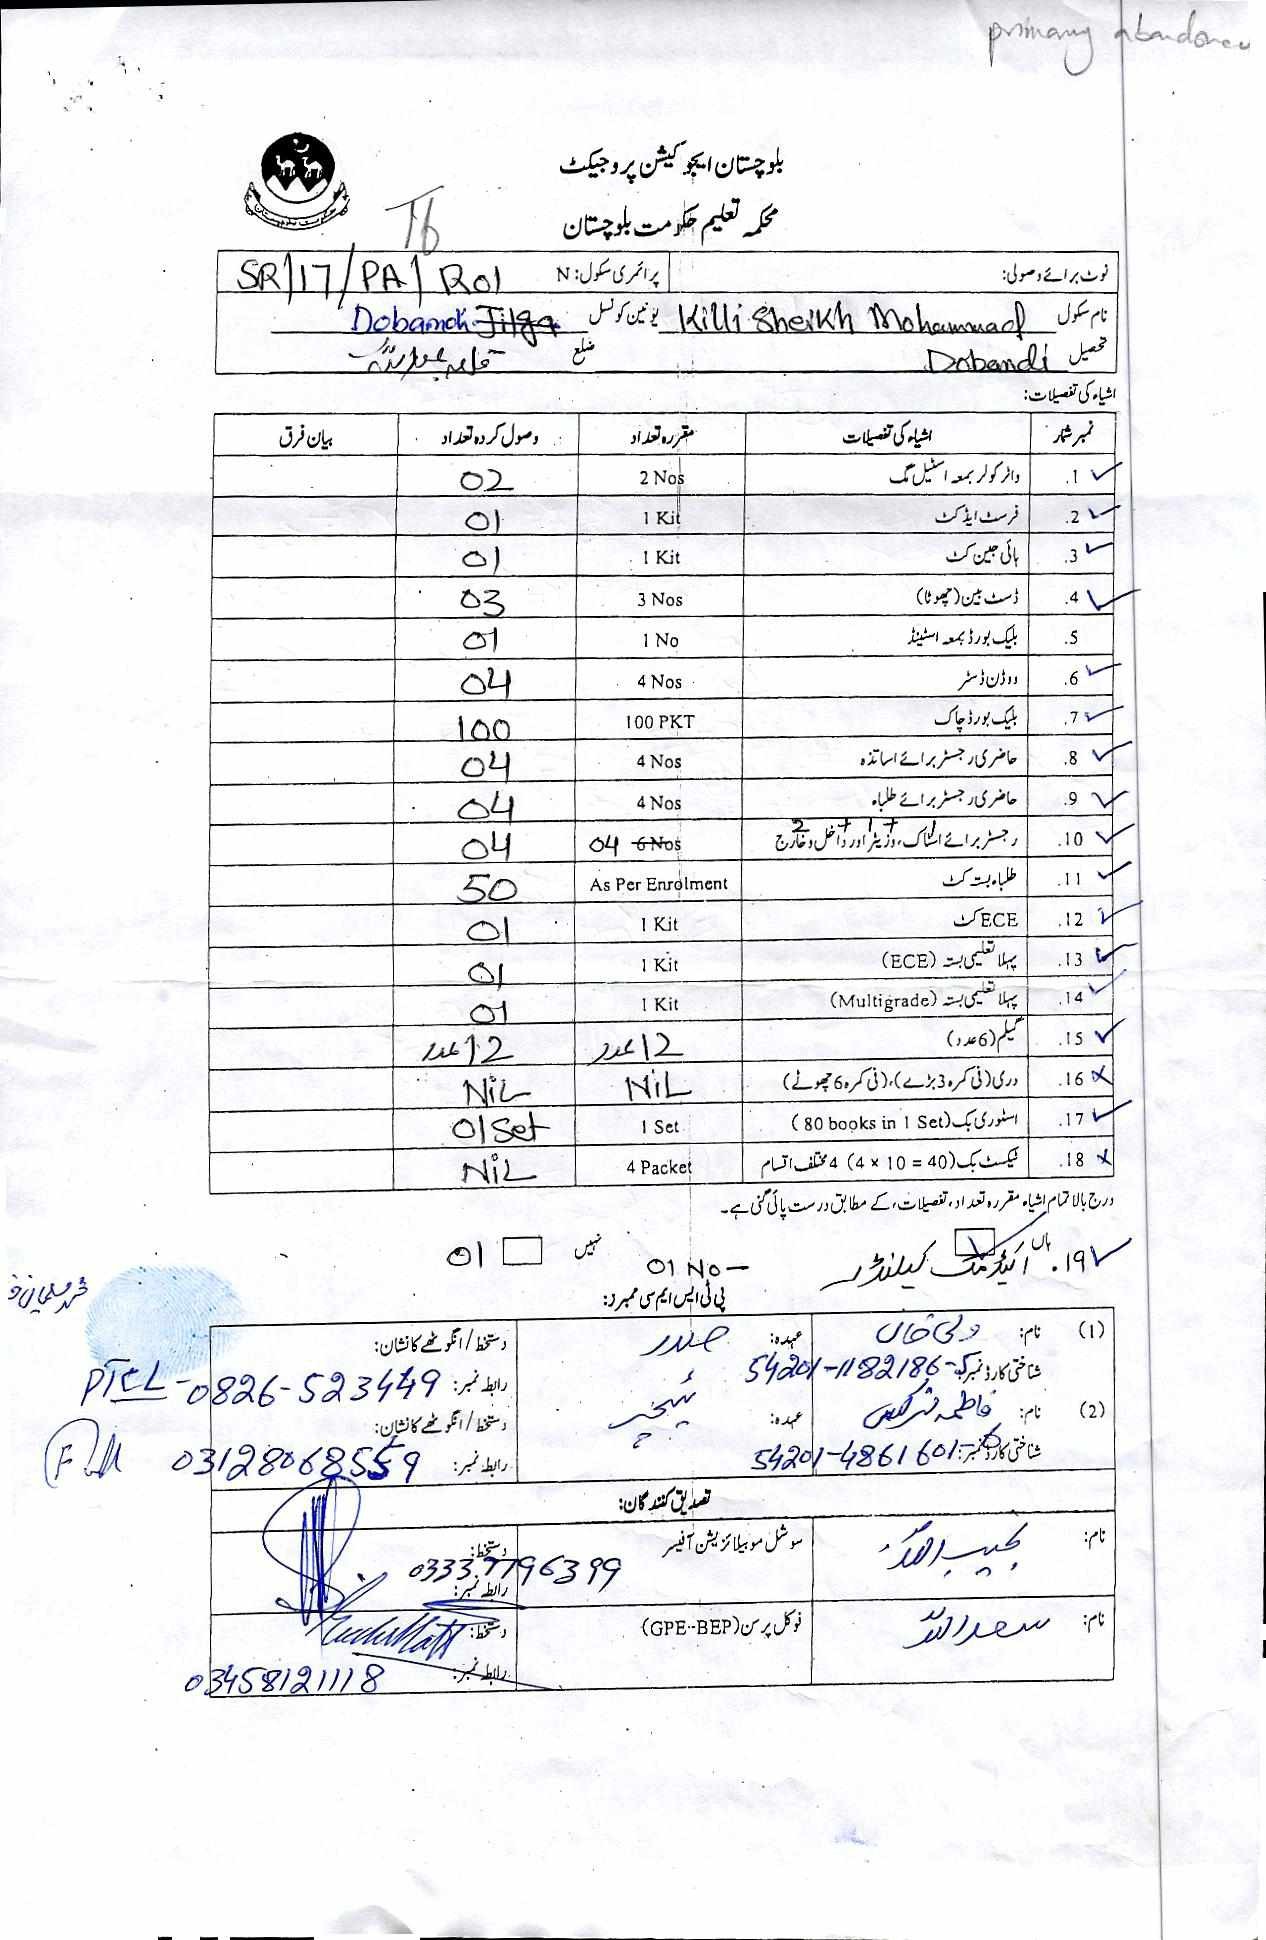 primary abandone
بلوچستان ایجوکیشن پروجیکٹ
محکمہ تعلیم حکومت بلوچستان
T6
نوٹ برائے وصولی: پرائمری سکول: N SR/17/PA/R01
نام سکول Killi Sheikh Mohammad یونین کونسل Jilga Dobandi
تحصیل Dobandi ضلع قلعہ عبداللہ
اشیاء کی تفصیلات:
نمبر شمار اشیاء کی تفصیلات مقررہ تعداد وصول کردہ تعداد بیان فرق
1. واٹر کولر بمعہ اسٹیل مگ 2 Nos 02
2. فرسٹ ایڈ کٹ 1 Kit 01
3. ہائی جین کٹ 1 Kit 01
4. ڈسٹ بین (چھوٹا) 3 Nos 03
5. بلیک بورڈ بمعہ اسٹینڈ 1 No 01
6. ووڈن ڈسٹر 4 Nos 04
7. بلیک بورڈ چاک 100 PKT 100
8. حاضری رجسٹر برائے اساتذہ 4 Nos 04
9. حاضری رجسٹر برائے طلباء 4 Nos 04
10. رجسٹر برائے اسٹاک، وزیٹر اور داخل و خارج 1 + 1 + 2 6 Nos 04 04
11. طلباء بستہ کٹ As Per Enrolment 50
12. ECE کٹ 1 Kit 01
13. پہلا تعلیمی بستہ (ECE) 1 Kit 01
14. پہلا تعلیمی بستہ (Multigrade) 1 Kit 01
15. گلیم (6 عدد) 12 عدد 12 عدد
16. دری (فی کمرہ 3 بڑے)، (فی کمرہ 6 چھوٹے) NIL NIL
17. اسٹوری بک (80 books in 1 Set) 1 Set 01 Set
18. ٹیکسٹ بک (4 x 10 = 40) 4 مختلف اقسام 4 Packet NIL
درج بالا تمام اشیاء مقررہ تعداد، تفصیلات، کے مطابق درست پائی گئی ہے۔
ہاں نہیں
19. کیلنڈر 01 No 01
پی ٹی ایس ایم سی ممبرد:
(1) نام: ولی خان عہدہ: صدر دستخط / انگوٹھے کا نشان:
شناختی کارڈ نمبر: 54201-1182186-5 رابطہ نمبر: PTCL-0826-523449
(2) نام: فاطمہ نرگس عہدہ: ٹیچر دستخط / انگوٹھے کا نشان:
شناختی کارڈ نمبر: 54201-4861601-6 رابطہ نمبر: 03128068559
تصدیق کنندگان:
نام: نجیب اللہ سوشل موبیلائزیشن آفیسر دستخط:
رابطہ نمبر: 03337796399
نام: سعد اللہ فوکل پرسن (GPE-BEP) دستخط:
رابطہ نمبر: 03458121118